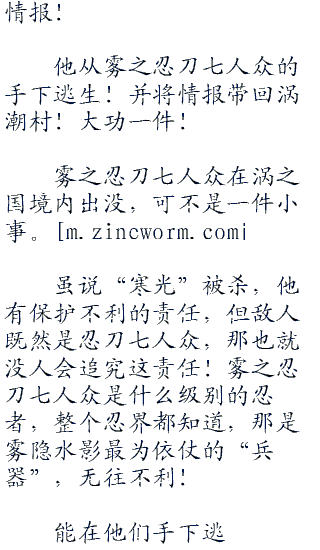 情报！
他从雾之忍刀七人众的
手下逃生！并将情报带回涡
潮村！大功一件！
雾之忍刀七人众在涡之
国境内出没，可不是一件小
事。[m.zincworm.com]
虽说“寒光”被杀，他
有保护不利的责任，但敌人
既然是忍刀七人众，那也就
没人会追究这责任！雾之忍
刀七人众是什么级别的忍
者，整个忍界都知道，那是
雾隐水影最为依仗的“兵
器”，无往不利！
能在他们手下逃